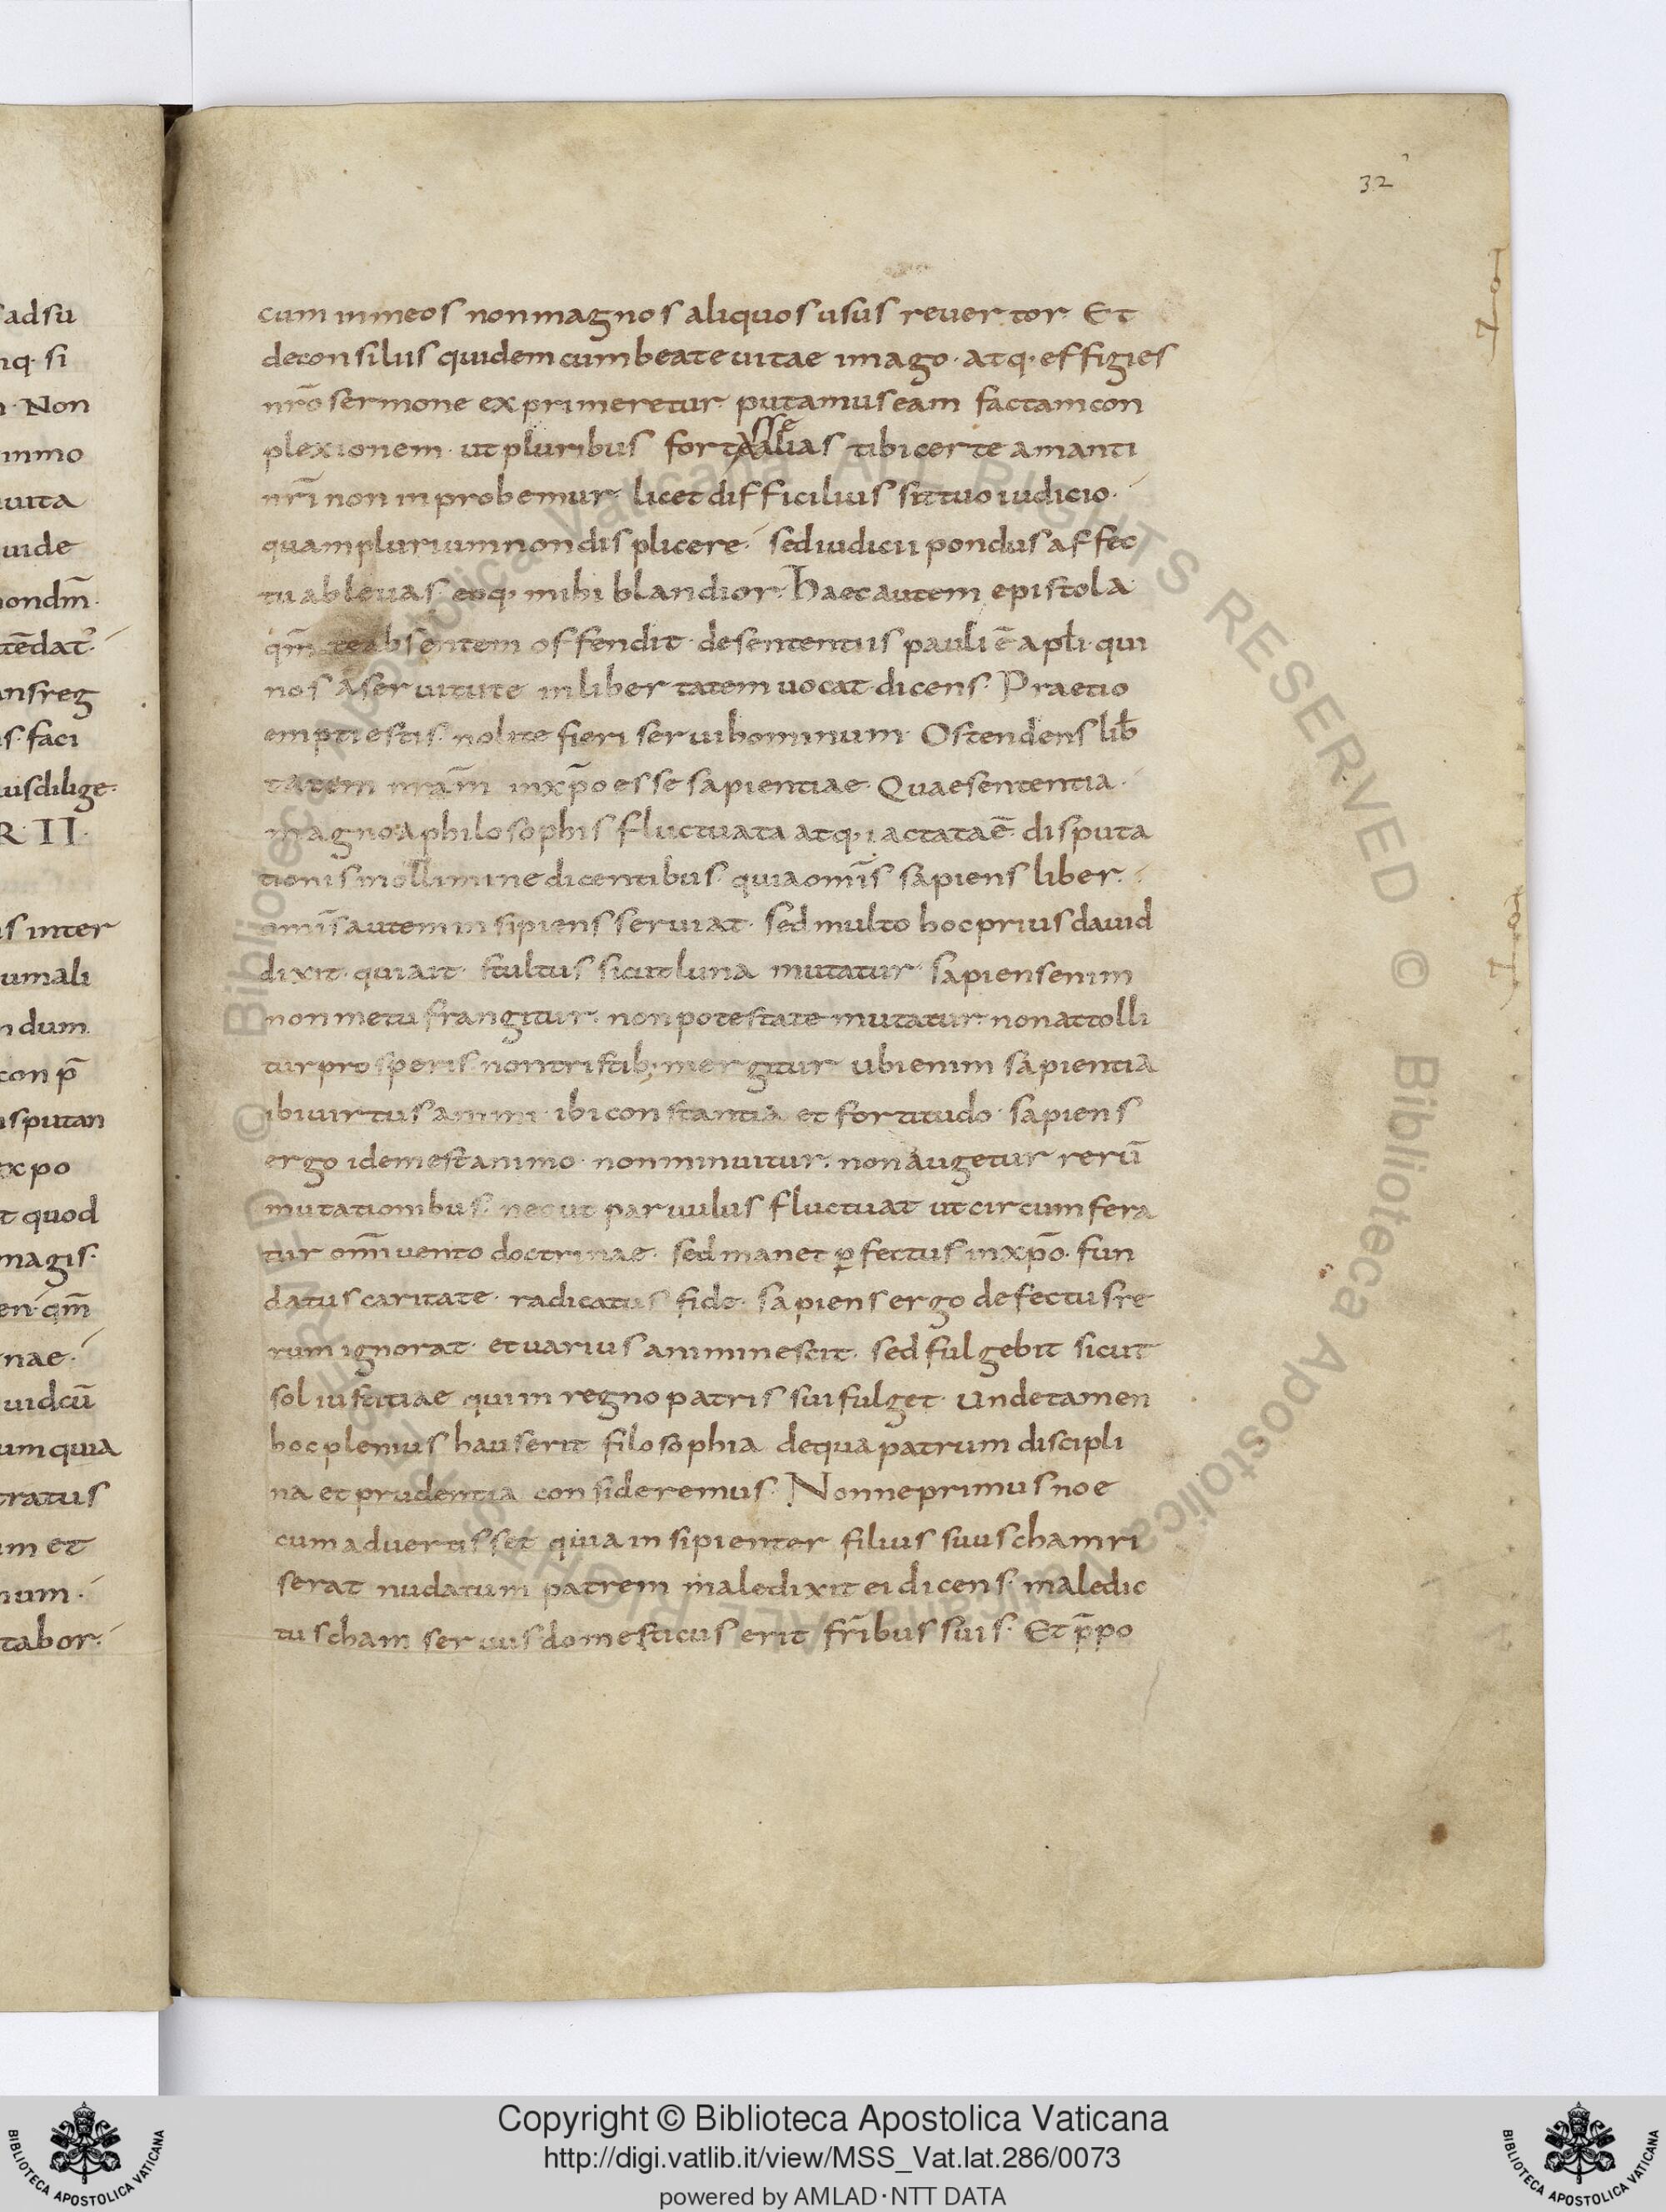 32
cum in meos non magnos aliquos usus reuertor. Et
deconsiliis quidem cum beate uitae imago. atq; effigies
nr̄o sermone exprimeretur. putamus eam factam con
plexionem. ut pluribus fortasse alias tibi certe amanti
nr̄i non inprobemur. licet difficilius sit tuo iudicio.
quam plurium non displicere. sed iudicii pondus affec
tu ableuas. eoq; mihi blandior. Haec autem epistola
qm̄ te absentem offendit. de sententiis pauli ē apl̄i. qui
nos a seruitute in libertatem uocat dicens. Praetio
empti estis. nolite fieri serui hominum. Ostendens lib̄
tatem nr̄am in xp̄o esse sapientiae. Quae sententia.
magno a philosophis fluctuata atq; iactata ē disputa
tionis mollimine dicentibus. quia om̄is sapiens liber.
om̄is autem insipiens seruiat. sed multo hoc prius dauid
dixit. qui ait. stultus sicut luna mutatur. Sapiens enim
non metu frangitur. non potestate mutatur. non attolli
tur prosperis non tristib; mergitur ubi enim sapientia
ibi uirtus animi. ibi constantia et fortitudo. sapiens
ergo idem est animo. non minuitur. non augetur rerū
mutationibus. nec ut paruulus fluctuat ut circumfera
tur om̄i uento doctrinae. sed manet p̱fectus in xp̄o. fun
datus caritate. radicatus fide. sapiens ergo defectus re
rum ignorat. et uarius animi nescit. sed fulgebit sicut
sol iustitiae qui in regno patris sui fulget. Unde tamen
hoc plenius hauserit filosophia de qua patrum discipli
na et prudentia consideremus. Nonne primus noe
cum aduertisset quia insipienter filius suus cham ri
serat nudatum patrem maledixit ei dicens. maledic
tus cham seruus domesticus erit fr̄ibus suis. Et p̄po
s adsu
nq. si
Non
inmo
uita
uide
nondm̄.
tēdat.
ansreg
s. faci
uis dilige
R. II.
is inter
um ali
n dum
con p̄
isputan
expo
t quod
magis.
en. qm̄
nae.
uid cū
um quia
tratus
m et
num.
tabor.
© Biblioteca Apostolica Vaticana ALL RIGHTS RESERVED © Biblioteca Apostolica Vaticana ALL RIGHTS RESERVED
Copyright © Biblioteca Apostolica Vaticana
http://digi.vatlib.it/view/MSS_Vat.lat.286/0073
powered by AMLAD·NTT DATA
BIBLIOTECA APOSTOLICA VATICANA
BIBLIOTECA APOSTOLICA VATICANA